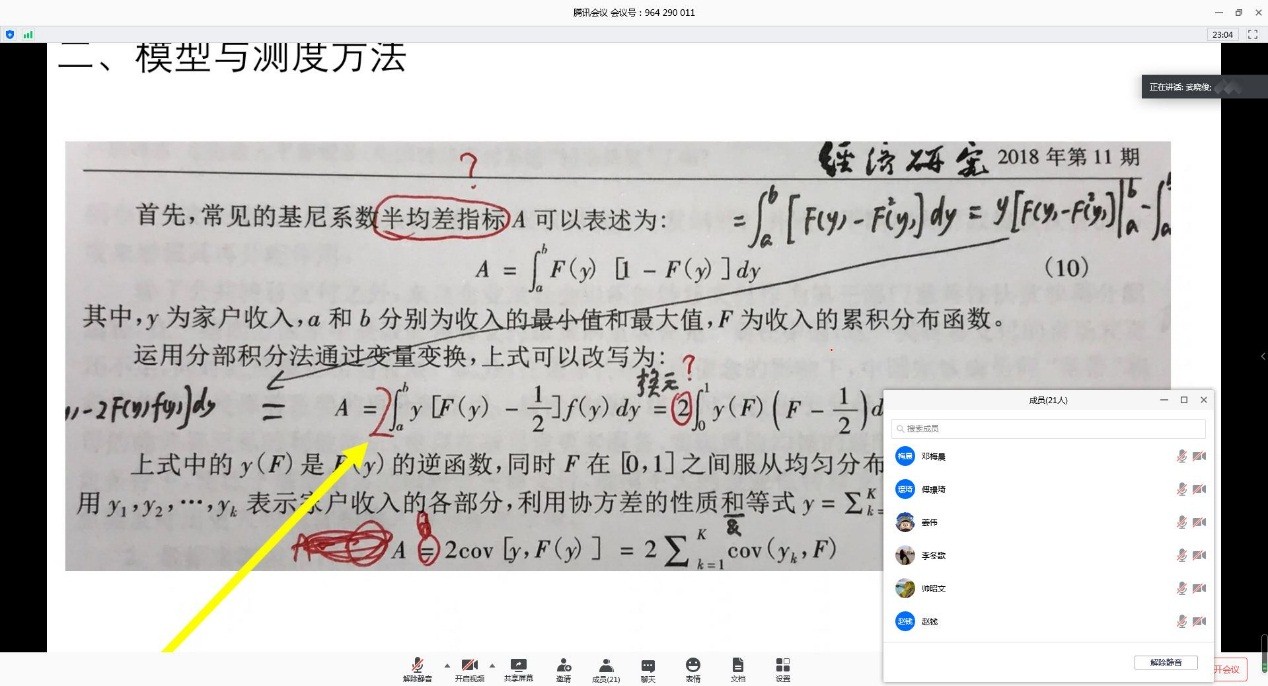 腾讯会议 会议号：964 290 011
23:04
二、模型与测度方法
正在讲话: 武晓俊;
?
经济研究 2018 年第 11 期
首先,常见的基尼系数半均差指标 A 可以表述为:
= ∫_a^b [F(y) - F²(y)] dy = y[F(y) - F²(y)]|_a^b - ∫_a
A = ∫_a^b F(y) [1 - F(y)] dy (10)
其中, y 为家户收入, a 和 b 分别为收入的最小值和最大值, F 为收入的累积分布函数。
运用分部积分法通过变量变换,上式可以改写为:
换元 ?
- 2F(y)f(y)]dy = A = 2 ∫_a^b y [F(y) - 1/2] f(y) dy = 2 ∫_0^1 y(F) (F - 1/2) d
上式中的 y(F) 是 F(y) 的逆函数,同时 F 在 [0,1] 之间服从均匀分布
用 y₁,y₂,…,y_k 表示家户收入的各部分,利用协方差的性质和等式 y = Σ_{k=}^K
A = 2cov [y, F(y)] = 2 Σ_{k=1}^K cov(y_k, F)
成员(21人)
搜索成员
梅晨 邓梅晨
璟琦 傅璟琦
姜伟
李冬歌
帅昭文
赵锐 赵锐
解除静音
解除静音 开启视频 共享屏幕 邀请 成员(21) 聊天 表情 文档 设置
开会议